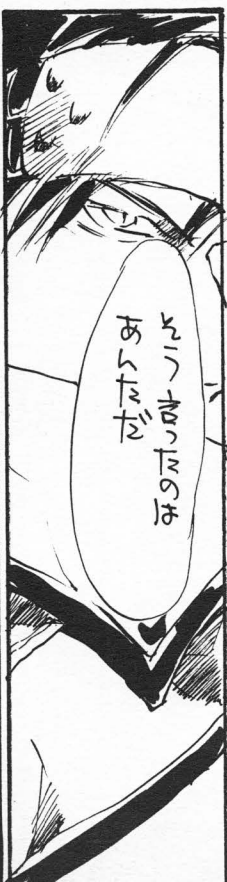 そう言ったのは
あんただ